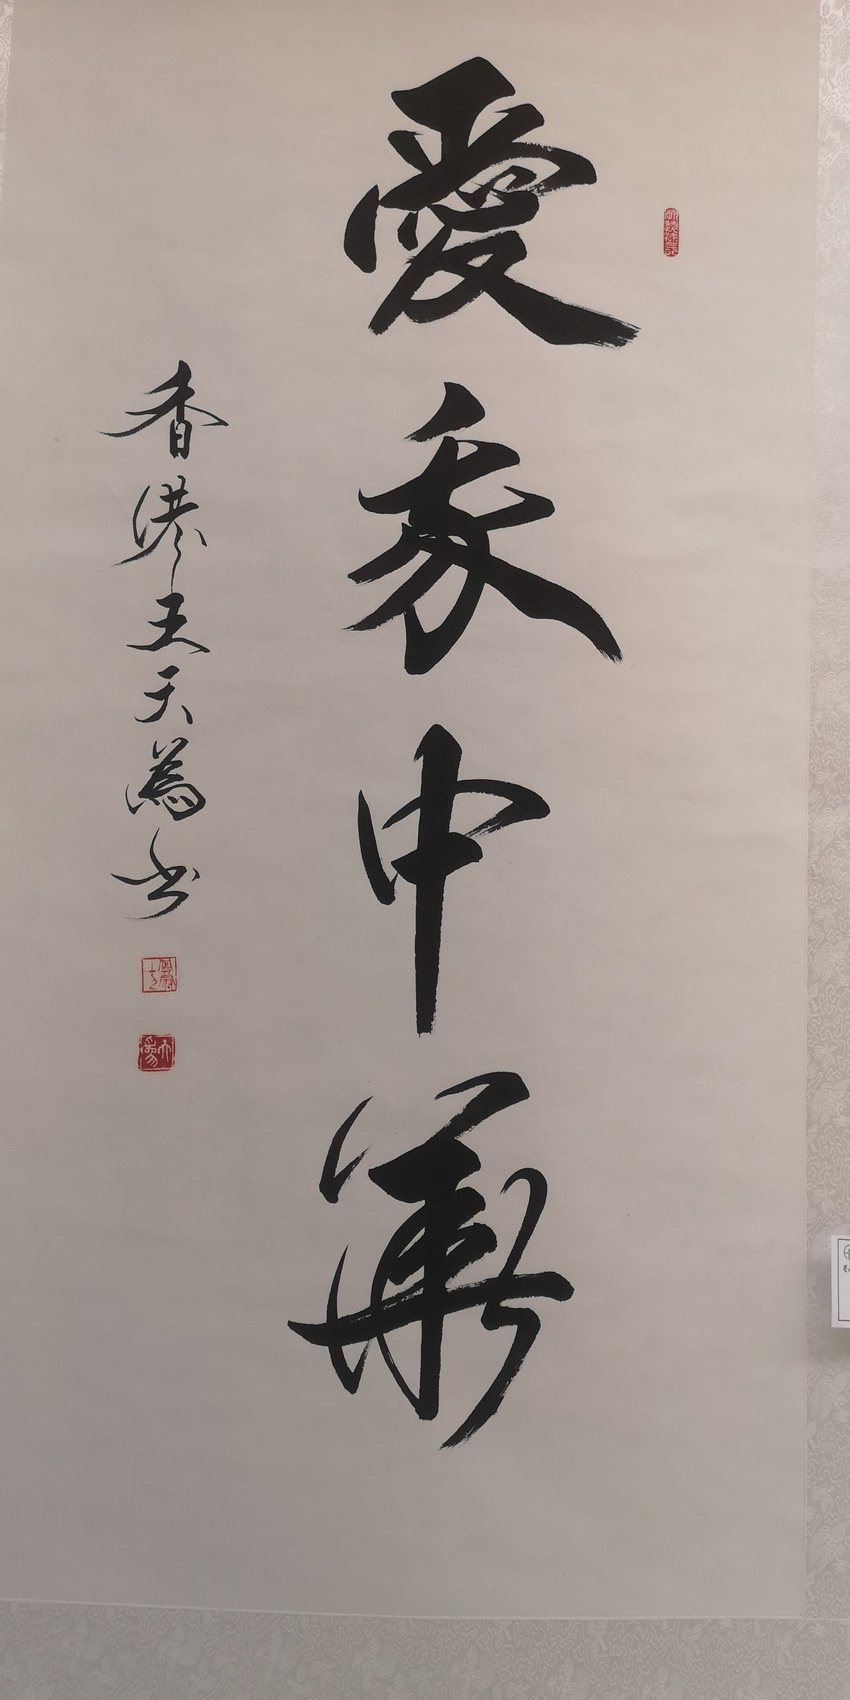 愛我中華
香港王天為书